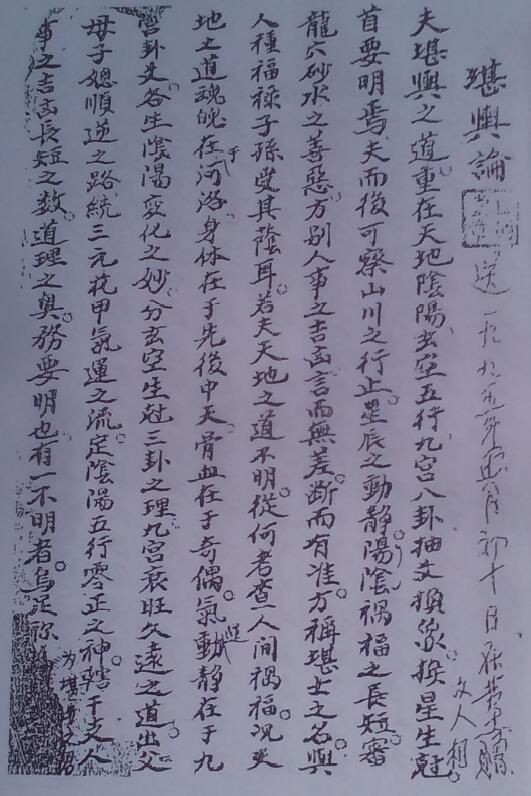 堪輿論
送一九九五年正月初十日
文人相
夫堪輿之道。重在天地陰陽。玄空五行。九宮八卦。抽爻換象。換星生尅。
首要明焉。夫而後可察山川之行止。星辰之動静。陽陰禍福之長短。審
龍穴砂水之善惡。方别人事之吉凶。言而無差。断而有准。方稱堪士之名。與
人種福祿。子孫受其陰耳。若夫天地之道不明。從何考查人間禍福。况夫
地之道。魂魄在于河洛。身体在于先後中天。骨血在于奇偶。氣動静在于九
宮卦爻。各生陰陽变化之妙。分玄空生尅三卦之理。九宮衰旺久遠之道。出父
母子媳順逆之路。統三元花甲氣運之流。定陰陽五行零正之神。轄干支人
事之吉凶長短之数。道理之奥。務要明也。有一不明者。烏足称
為堪